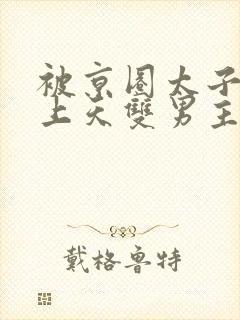 被京圈太子
上天雙男主
戴格鲁特